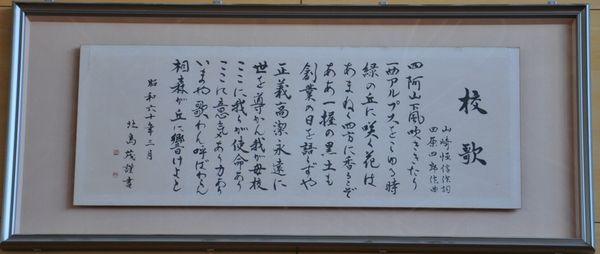 校歌
山崎恒信作詞
田原四郎作曲
四阿山下風吹ききたり
西アルプスをこゆる時
緑の丘に咲く花は
あまねく四方に香るこそ
ああ一握の黒土も
創業の日を語らずや
正義高潔永遠に
世を導かん我が母校
ここに我らが使命あり
ここに意気あり力あり
いまや歌わん呼ばわらん
祠森が丘に響けよと
昭和六十年三月
北島茂謹書